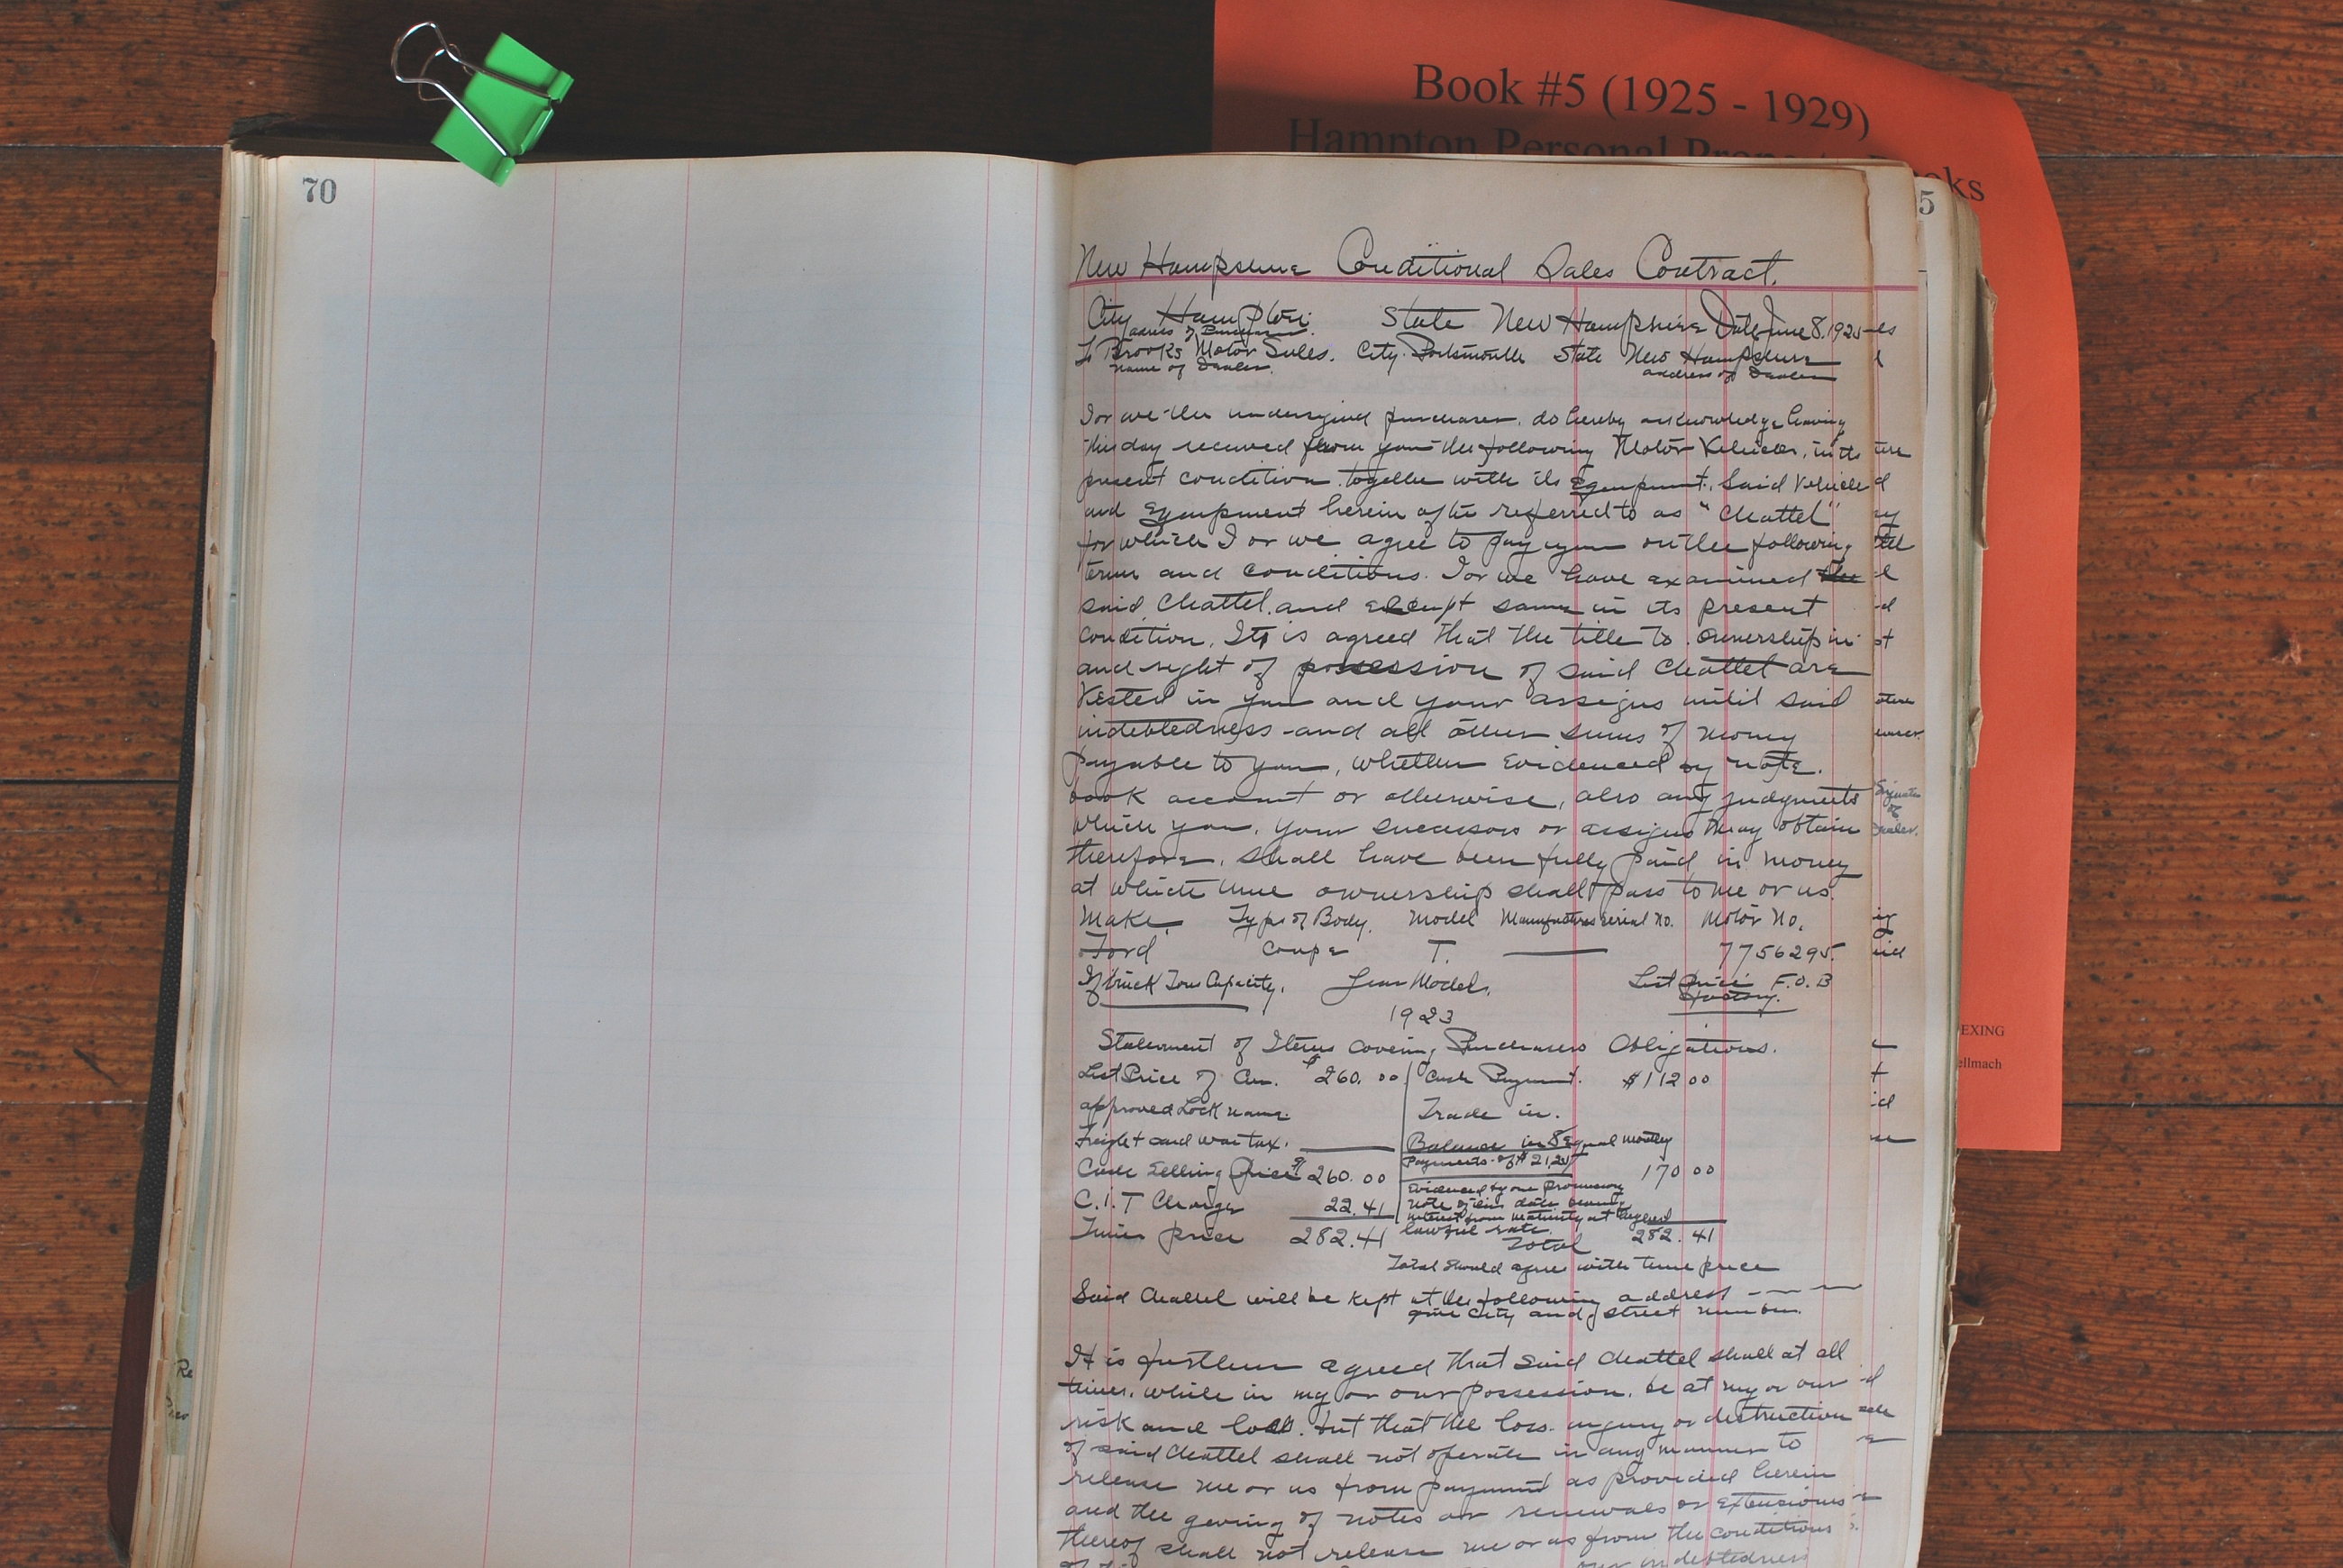 Book #5 (1925 - 1929)
Hampton Personal Property Books
70
5
New Hampshire Conditional Sales Contract.
City Hampton State New Hampshire Date June 8, 1925
address of Purchaser.
To Brooks Motor Sales. City Portsmouth State New Hampshire
name of Dealer. address of Dealer
I or we the undersigned purchaser, do hereby acknowledge having
this day received from you the following Motor Vehicle, in its
present condition together with its Equipment, Said Vehicle
and Equipment herein after referred to as "Chattel"
for which I or we agree to pay you on the following
terms and conditions. I or we have examined the
said Chattel, and accept same in its present
condition. It is agreed that the title to ownership in
and right of possession of said Chattel are
Vested in you and your assigns until said
indebtedness and all other sums of money
payable to you, whether Evidenced by note.
book account or otherwise, also any judgments
which you, your successors or assigns may obtain
therefore, shall have been fully paid in money
at which time ownership shall pass to me or us.
Make. Type of Body. Model Manufactures Serial No. Motor No.
Ford Coupe T. 7756295.
If truck Tons Capacity. Year Model. List Price F.O.B
factory.
1923
Statement of Items covering Purchasers Obligations.
List Price of Car. $260.00 Cash Payment. $112 00
approved Lock name. Trade in.
Freight and war tax. Balance in 8 Equal monthly
Payments of $21.25 170 00
Cash Selling Price $260.00
Evidenced by one promissory
note of this date bearing
C.I.T Charge 22.41
interest from maturity at highest
lawful rate.
Time price 282.41 Total 282.41
Total should agree with time price
Said Chattel will be kept at the following address
give City and street number.
It is further agreed that said chattel shall at all
times, while in my or our possession, be at my or our
risk and loss. but that the loss. injury or destruction
of said chattel shall not operate in any manner to
release me or us from payment as provided herein
and the giving of notes or renewals or extensions
thereof shall not release me or us from the conditions
our indebtedness
EXING
ellmach
Signature
of
Dealer.